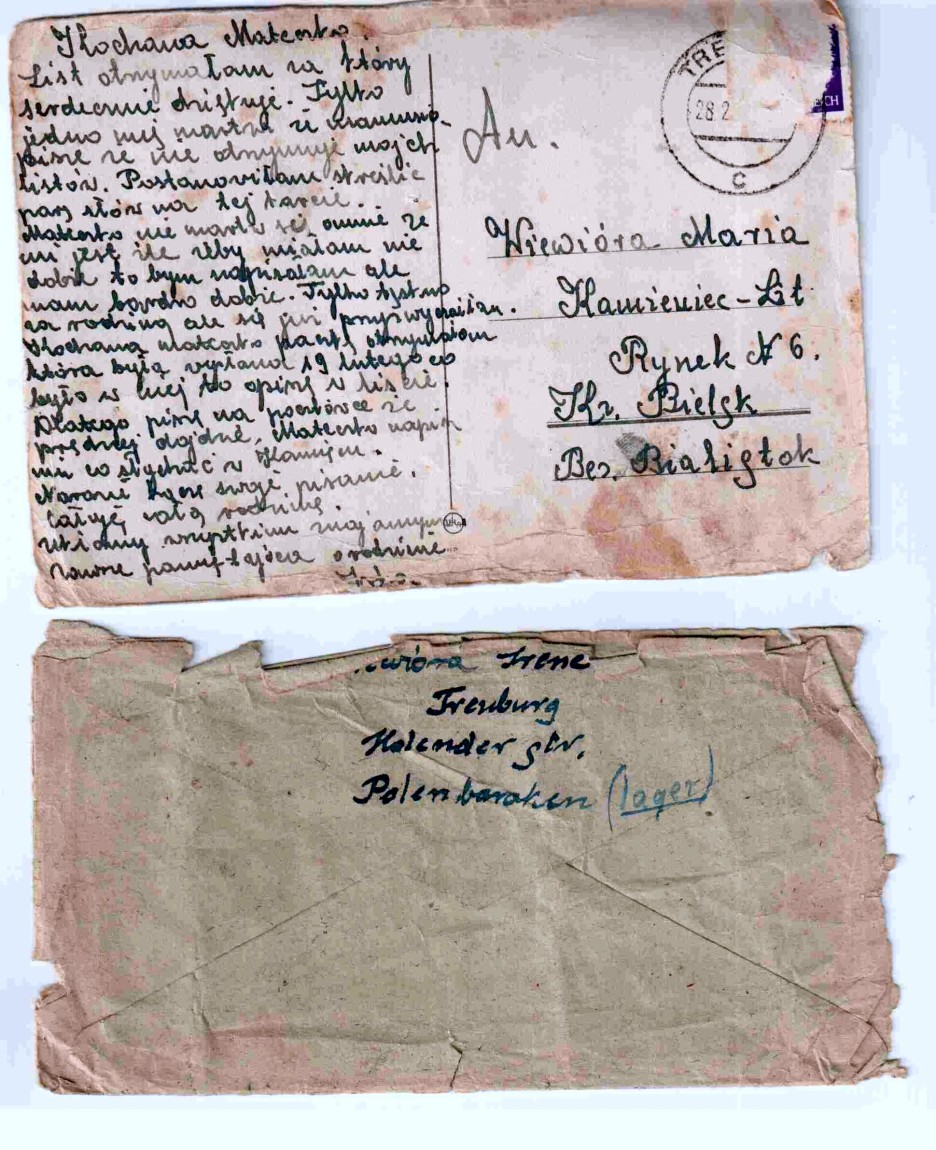 Kochana Mateczko.
List otrzymałam za który
serdecznie dziękuję. Tylko
jedno mię martwi że mamusia
pisze że nie otrzymuje mojch
listów. Postanowiłam skreślić
parę słów na tej karcie.
Mateczko nie martw się omnie że
mi jest źle żeby miałam nie
dobże to bym napisałam ale
mam bardzo dobże. Tylko tęskno
za rodziną ale się już przyzwyczaiłam.
Kochana Mateczko kartę otrzymałam
która była wysłana 19 lutego co
było w niej to opiszę w liście.
Dlatego piszę na pocztówce że
prędzej dojdzie. Mateczko napisz
mi co słychać w Kamieńcu.
Narazie kączę swoje pisanie.
Całuję całą rodzinę.
Ukłony wszystkim znajomym
zawsze pamiętająca o rodzinie
An.
Wiewióra Maria
Kamieniec-Lit
Rynek N 6.
Kr. Bielsk
Bez. Białistok
TRE
28.2
C
CH
wióra Irene
Treuburg
Holender str.
Polenbaraken (lager)